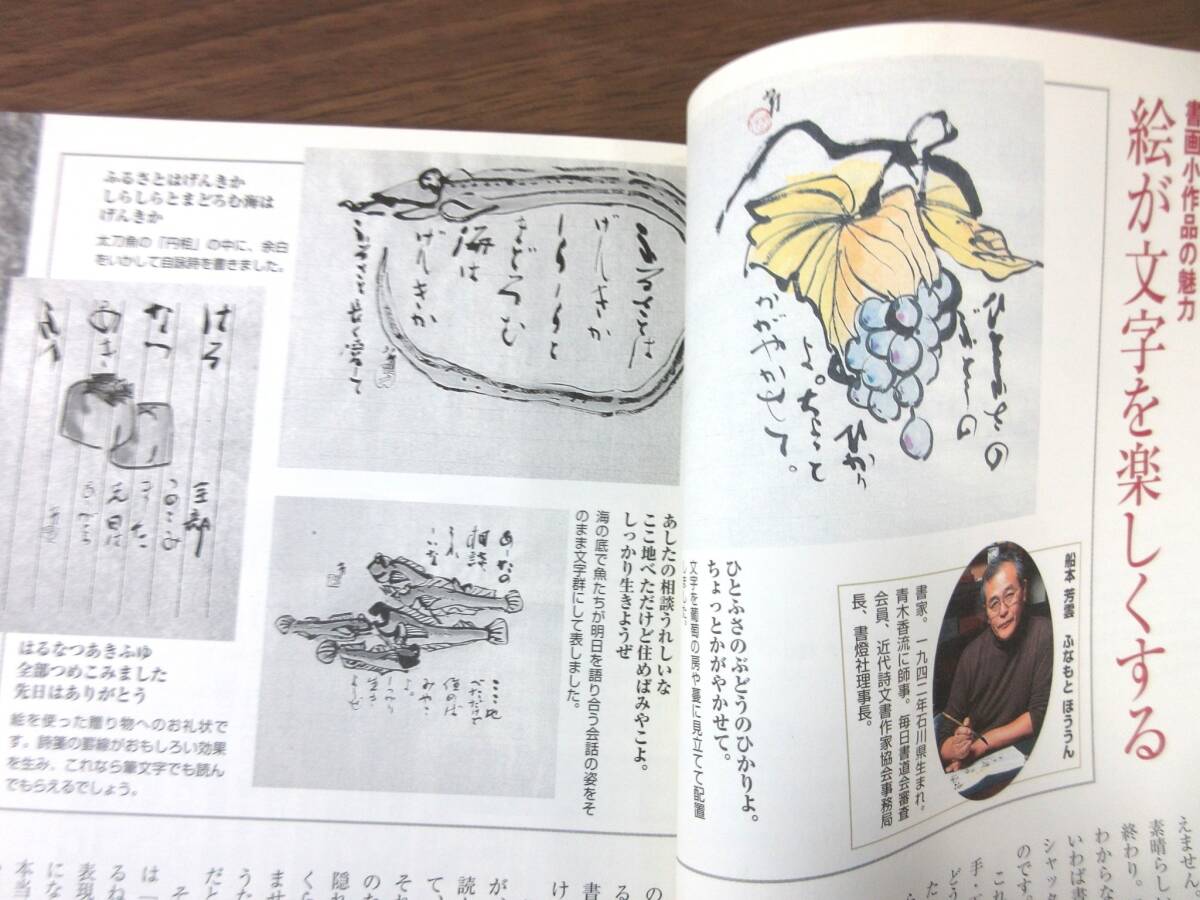 書画小作品の魅力
絵が文字を楽しくする
船本 芳雲 ふなもと ほううん
書家。一九四二年石川県生まれ。
青木香流に師事。毎日書道会審査
会員、近代詩文書作家協会事務局
長、書燈社理事長。
ひとふさの
ぶどうの
ひかり
よ。ちょっと
かがやかせて。
ひとふさのぶどうのひかりよ。
ちょっとかがやかせて。
文字を葡萄の房や蔓に見立てて配置
しました。
ふるさとは
げんきか
しらしらと
まどろむ
海は
げんきか
ふるさとはげんきか
しらしらとまどろむ海は
げんきか
太刀魚の「円相」の中に、余白
をいかして自詠詩を書きました。
あしたの相談うれしいな
ここ地べただけど住めばみやこよ。
しっかり生きようぜ
海の底で魚たちが明日を語り合う会話の姿をそ
のまま文字群にして表しました。
あしたの
相談
うれ
しいな
ここ地
べただけど
住めば
みやこ
よ。
しっかり
生き
ようぜ
はる
なつ
あき
ふゆ
全部
つめこみ
ました
先日は
ありがとう
はるなつあきふゆ
全部つめこみました
先日はありがとう
絵を使った贈り物へのお礼状で
す。詩箋の罫線がおもしろい効果
を生み、これなら筆文字でも読ん
でもらえるでしょう。
えません。
素晴らし
終わり。
わからな
いわば書
シャッタ
のです。
これ
手・
どう
た